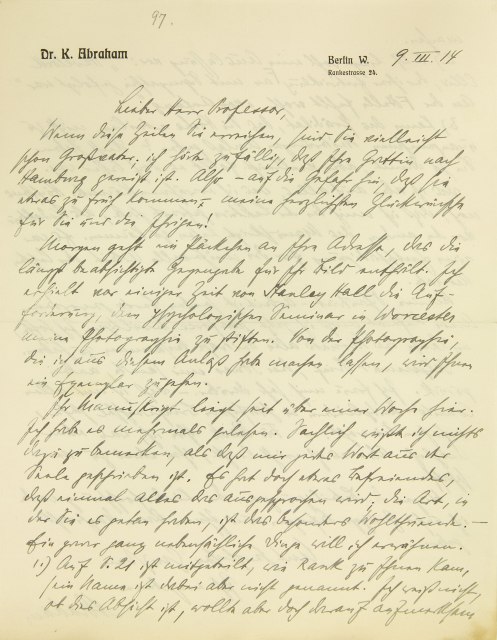 97.
Dr. K. Abraham
Berlin W. 9. III. 14
Rankestrasse 24.
Lieber Herr Professor,
Wenn diese Zeilen Sie erreichen, sind Sie vielleicht
schon Großvater. Ich hörte zufällig, daß Ihre Gattin nach
Hamburg gereist ist. Also – auf die Gefahr hin, daß sie
etwas zu früh kommen, – meine herzlichsten Glückwünsche
für Sie und die Ihrigen!
Morgen geht ein Päckchen an Ihre Adresse, das die
längst beabsichtigte Gegengabe für Ihr Bild enthält. Ich
erhielt vor einiger Zeit von Stanley Hall die Auf-
forderung, dem Psychologischen Seminar in Worcester
meine Photographie zu stiften. Von der Photographie,
die ich aus diesem Anlaß habe machen lassen, wird Ihnen
ein Exemplar zugehen.
Ihr Manuskript liegt seit über einer Woche hier.
Ich habe es mehrmals gelesen. Sachlich wüßte ich nichts
dazu zu bemerken, als daß mir jedes Wort aus der
Seele geschrieben ist. Es hat doch etwas Befreiendes,
daß einmal alles das ausgesprochen wird. Die Art, in
der Sie es getan haben, ist das besonders Wohltuende. –
Ein paar ganz nebensächliche Dinge will ich erwähnen.
1.) Auf S. 21 ist mitgeteilt, wie Rank zu Ihnen kam,
sein Name ist dabei aber nicht genannt. Ich weiß nicht,
ob dies Absicht ist, wollte aber doch darauf aufmerksam